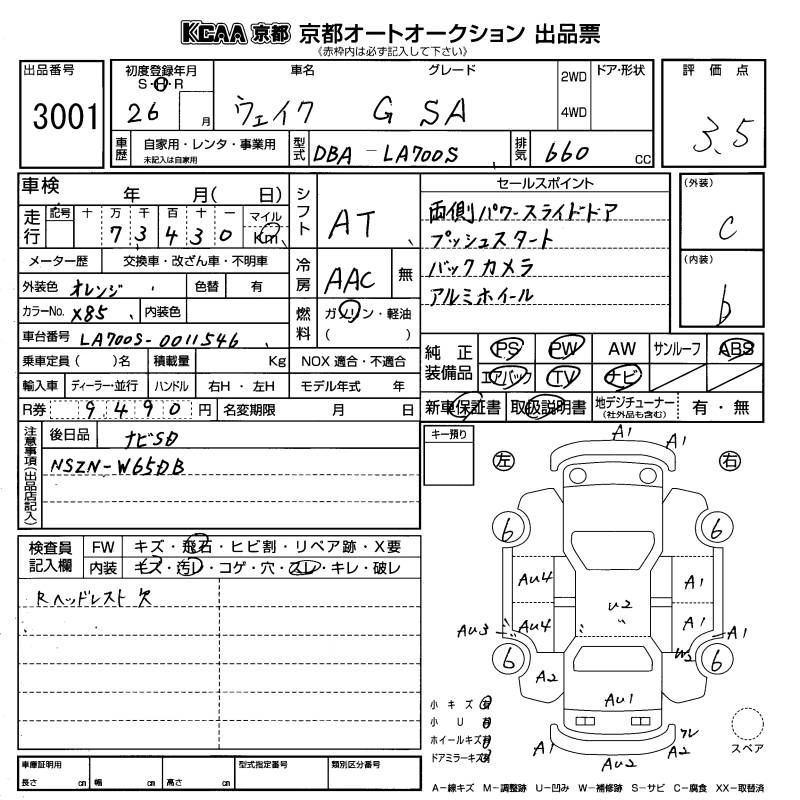 KCAA 京都 京都オートオークション 出品票
《赤枠内は必ず記入して下さい》
出品番号
3001
初度登録年月
S・H・R
26 月
車名 グレード
ウェイク G SA
2WD
4WD
ドア・形状
評価点
3.5
車歴
自家用・レンタ・事業用
未記入は自家用
型式
DBA-LA700S
排気
660 CC
車検 年 月( 日)
走行
記号 十 万 千 百 十 一 マイル
7 3 4 3 0 Km
シフト
AT
セールスポイント
両側パワースライドドア
プッシュスタート
バックカメラ
アルミホイール
(外装)
C
(内装)
b
メーター歴 交換車・改ざん車・不明車
外装色 オレンジ 色替 有
冷房
AAC 無
カラーNo. X85 内装色
燃料
ガソリン・軽油
( )
車台番号 LA700S-0011546
乗車定員 ( )名 積載量 Kg NOX 適合・不適合
輸入車 ディーラー・並行 ハンドル 右H・左H モデル年式 年
R券 9490 円 名変期限 月 日
純正装備品
PS PW AW サンルーフ ABS
エアバック TV ナビ
新車保証書 取扱説明書 地デジチューナー 有・無
(社外品も含む)
注意事項(出品店記入)
後日品 ナビSD
NSZN-W65DB
キー預り
左 右
検査員記入欄
FW キズ・飛石・ヒビ割・リペア跡・X要
内装 キズ・汚レ・コゲ・穴・スレ・キレ・破レ
Rヘッドレスト欠
A1 A1
6 6
AU4 A1
U2
AU4 A1
AU3 A1
W2
6 6
A2
AU1
A1 AU2 A2
小キズ有
小U有
ホイールキズ有
ドアミラーキズ有
スペア
車庫証明用
長さ cm 幅 cm 高さ cm
型式指定番号
類別区分番号
A-線キズ M-調整跡 U-凹み W-補修跡 S-サビ C-腐食 XX-取替済